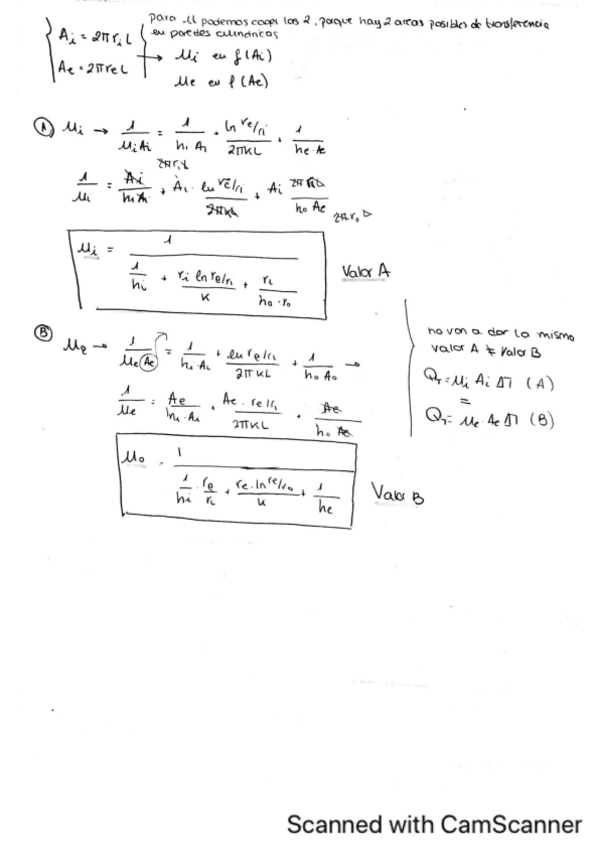 para U podemos coger las 2, porque hay 2 areas posibles de transferencia
en paredes cilindricas
Ai = 2πriL
Ae = 2πreL
→ Ui en f(Ai)
Ue en f(Ae)
A) Ui → 1/(UiAi) = 1/(hi Ai) + ln re/ri/(2πKL) + 1/(he·Ae)
1/Ui = Ai/(hiAi) + Ai · ln re/ri/(2πKL) + Ai 2πriL/(ho Ae) 2πroL
Ui = 1/(1/hi + ri ln re/ri/K + ri/(ho·ro))
Valor A
B) Ue → 1/(Ue(Ae)) = 1/(hi·Ai) + ln re/ri/(2πKL) + 1/(hoAo) →
1/Ue = Ae/(hi·Ai) + Ae · re/ri/(2πKL) + Ae/(ho Ae)
Uo = 1/(1/hi · re/ri + re·ln re/ro/K + 1/he)
Valor B
no van a dar lo mismo
valor A ≠ Valor B
QT = Ui Ai ΔT (A)
=
QT = Ue Ae ΔT (B)
Scanned with CamScanner